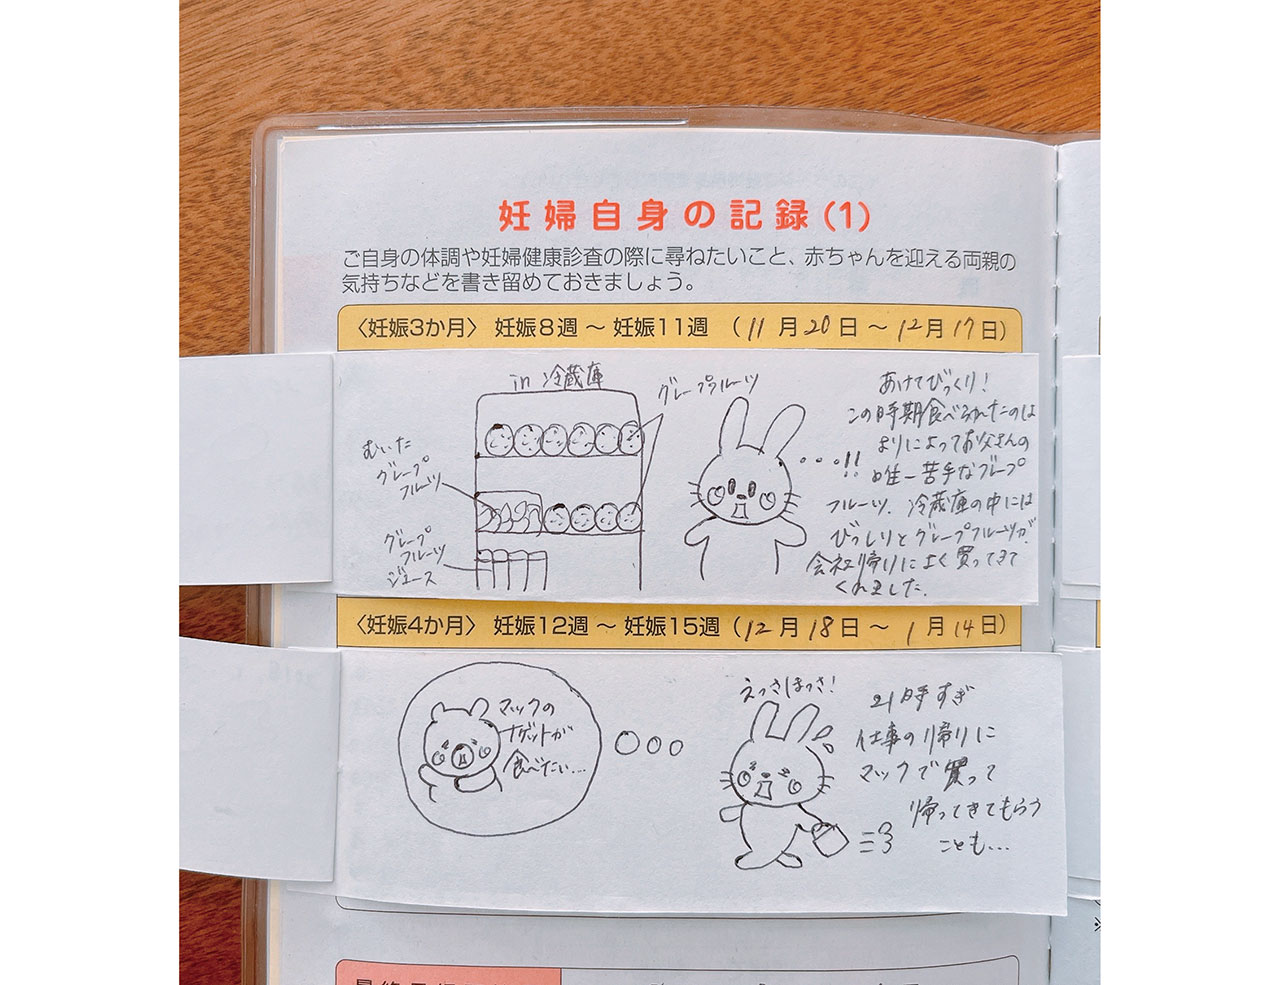 妊婦自身の記録(1)
ご自身の体調や妊婦健康診査の際に尋ねたいこと、赤ちゃんを迎える両親の
気持ちなどを書き留めておきましょう。
〈妊娠3か月〉 妊娠8週 ～ 妊娠11週 (11月20日 ～ 12月17日)
in 冷蔵庫
グレープフルーツ
むいた
グレープ
フルーツ
グレープ
フルーツ
ジュース
・・・!!
あけてびっくり!
この時期食べられたのは
よりによってお父さんの
唯一苦手なグレープ
フルーツ. 冷蔵庫の中には
びっしりとグレープフルーツが.
会社帰りによく買ってきて
くれました.
〈妊娠4か月〉 妊娠12週 ～ 妊娠15週 (12月18日 ～ 1月14日)
マックの
ナゲットが
食べたい...
えっさほっさ!
21時すぎ
仕事の帰りに
マックで買って
帰ってきてもらう
ことも...